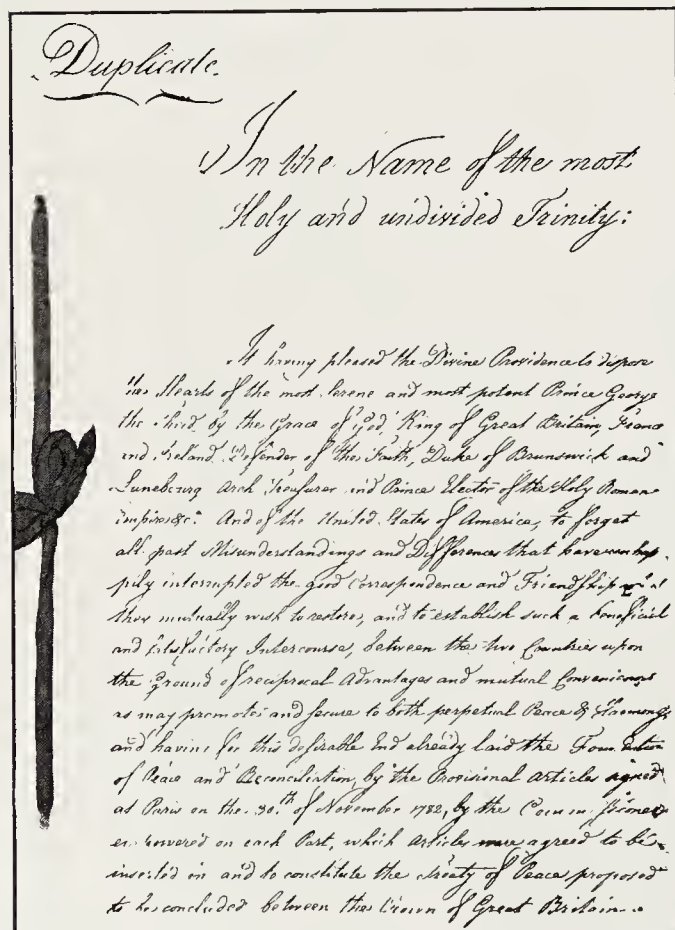 Duplicate.
In the Name of the most
Holy and undivided Trinity:
It having pleased the Divine Providence to dispose
the Hearts of the most Serene and most potent Prince George
the third by the Grace of God, King of Great Britain, France
and Ireland, Defender of the Faith, Duke of Brunswick and
Lunebourg Arch Treasurer and Prince Elector of the Holy Roman
Empire &c:. And of the United States of America, to forget
all past Misunderstandings and Differences that have unhap-
pily interrupted the good Correspondence and Friendship which
they mutually wish to restore, and to establish such a beneficial
and satisfactory Intercourse, between the two Countries upon
the Ground of reciprocal Advantages and mutual Convenience
as may promote and secure to both perpetual Peace & Harmony,
and having for this desirable End already laid the Foundation
of Peace and Reconciliation, by the Provisional Articles signed
at Paris on the 30.th of November 1782, by the Commissioners
empowered on each Part, which Articles were agreed to be
inserted in and to constitute the Treaty of Peace proposed
to be concluded between the Crown of Great Britain